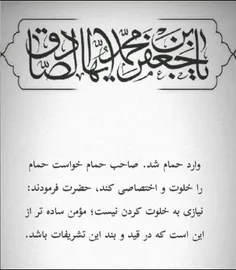 یا جعفر بن محمد ایها الصادق
وارد حمام شد. صاحب حمام خواست حمام
را خلوت و اختصاصی کند، حضرت فرمودند:
نیازی به خلوت کردن نیست؛ مؤمن ساده تر از
این است که در قید و بند این تشریفات باشد.